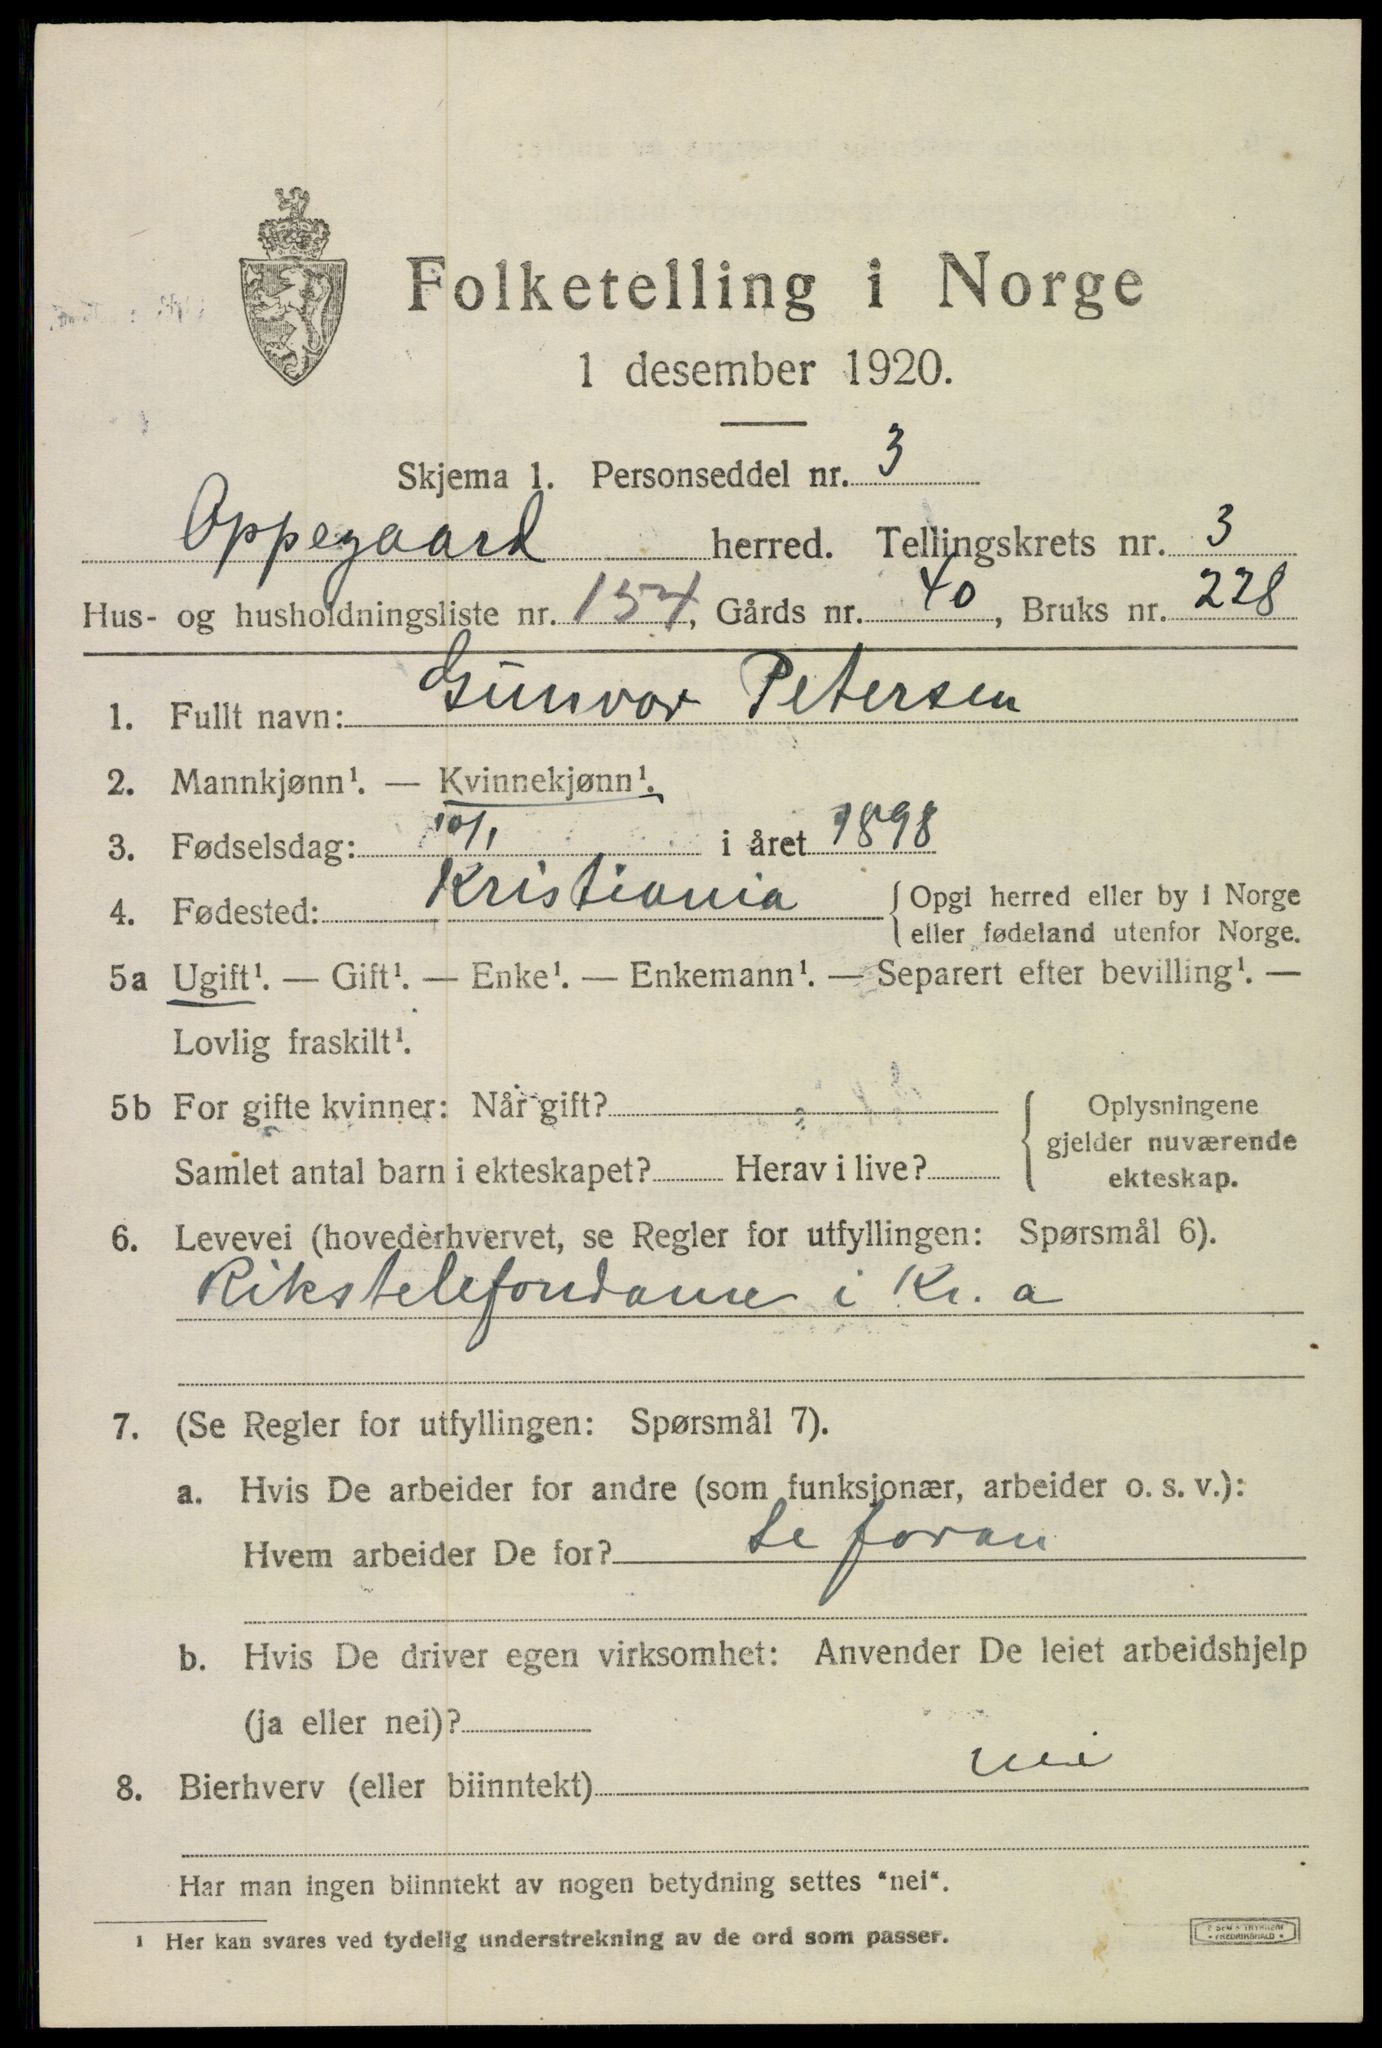 Folketelling i Norge
1 desember 1920.
Skjema 1. Personseddel nr. 3
Oppegaard herred. Tellingskrets nr. 3
Hus- og husholdningsliste nr. 154, Gårds nr. 40, Bruks nr. 228
1. Fullt navn: Gunvor Petersen
2. Mannkjønn¹. — Kvinnekjønn¹.
3. Fødselsdag: 10/1 i året 1898
4. Fødested: Kristiania { Opgi herred eller by i Norge
eller fødeland utenfor Norge.
5a Ugift¹. — Gift¹. — Enke¹. — Enkemann¹. — Separert efter bevilling¹. —
Lovlig fraskilt¹.
5b For gifte kvinner: Når gift? { Oplysningene
gjelder nuværende
Samlet antal barn i ekteskapet? Herav i live? ekteskap.
6. Levevei (hovederhvervet, se Regler for utfyllingen: Spørsmål 6).
Rikstelefondame i Kr. a
7. (Se Regler for utfyllingen: Spørsmål 7).
a. Hvis De arbeider for andre (som funksjonær, arbeider o. s. v.):
Hvem arbeider De for? Se foran
b. Hvis De driver egen virksomhet: Anvender De leiet arbeidshjelp
(ja eller nei)?
8. Bierhverv (eller biinntekt) nei
Har man ingen biinntekt av nogen betydning settes "nei".
¹ Her kan svares ved tydelig understrekning av de ord som passer.